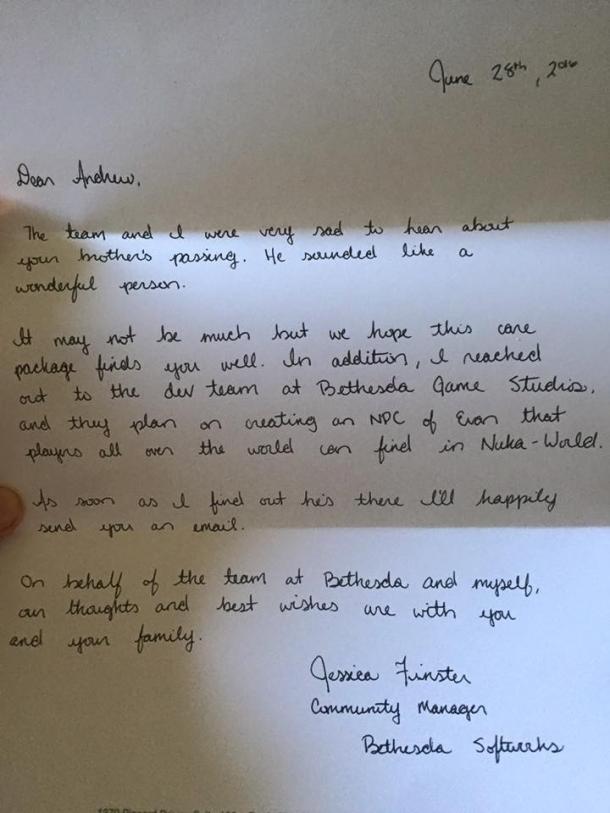 June 28th, 2016
Dear Andrew,
The team and I were very sad to hear about
your brother's passing. He sounded like a
wonderful person.
It may not be much but we hope this care
package finds you well. In addition, I reached
out to the dev team at Bethesda Game Studios,
and they plan on creating an NPC of Evan that
players all over the world can find in Nuka-World.
As soon as I find out he's there I'll happily
send you an email.
On behalf of the team at Bethesda and myself,
our thoughts and best wishes are with you
and your family.
Jessica Finster
Community Manager
Bethesda Softworks